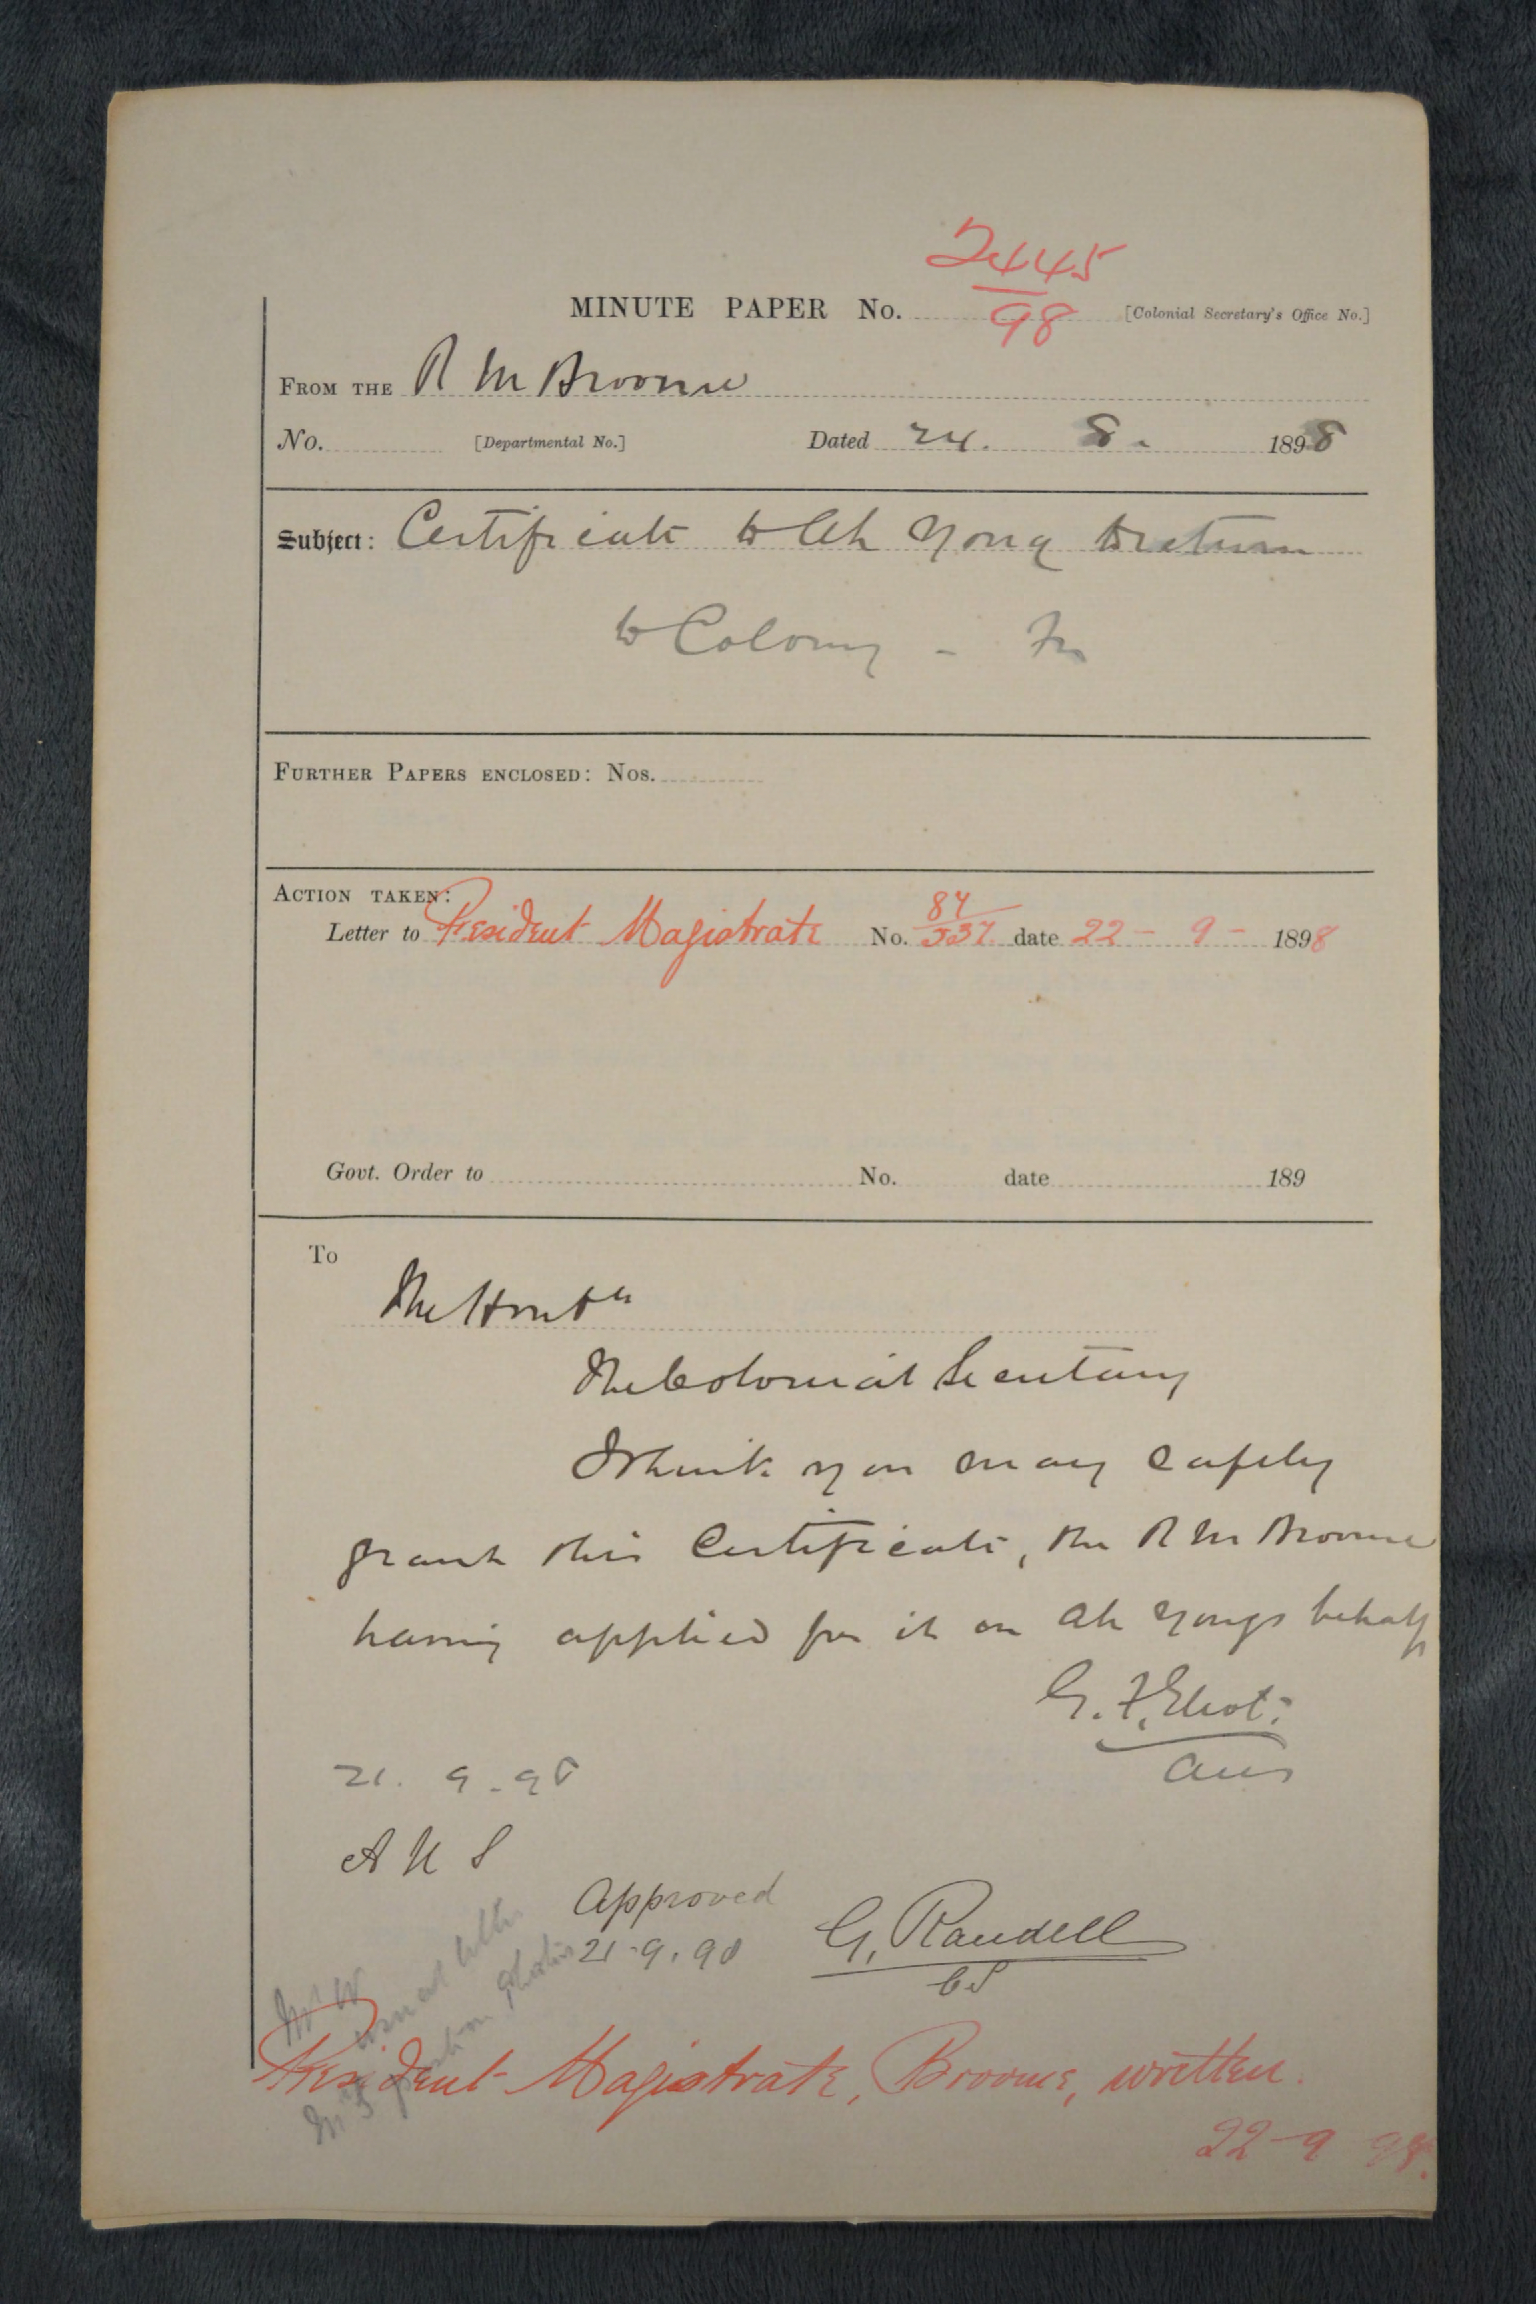 2445
98
MINUTE PAPER No. [Colonial Secretary's Office No.]
FROM THE R M Broome
No. [Departmental No.] Dated 24. 8. 1898
Subject: Certificate to Ah Yong to return
to Colony -
FURTHER PAPERS ENCLOSED: Nos.
ACTION TAKEN:
Letter to Resident Magistrate No. 84/537 date 22 - 9 - 1898
Govt. Order to No. date 189
To
The Honble
The Colonial Secretary
I think you may safely
grant this Certificate, the R M Broome
having applied for it on Ah Yongs behalf
G. F. Eliot.
AUS
21. 9. 98
A U S
Approved
21.9.98 G. Randell
CS
Mr W
usual letter
Resident Magistrate, Broome, written.
22-9 98.